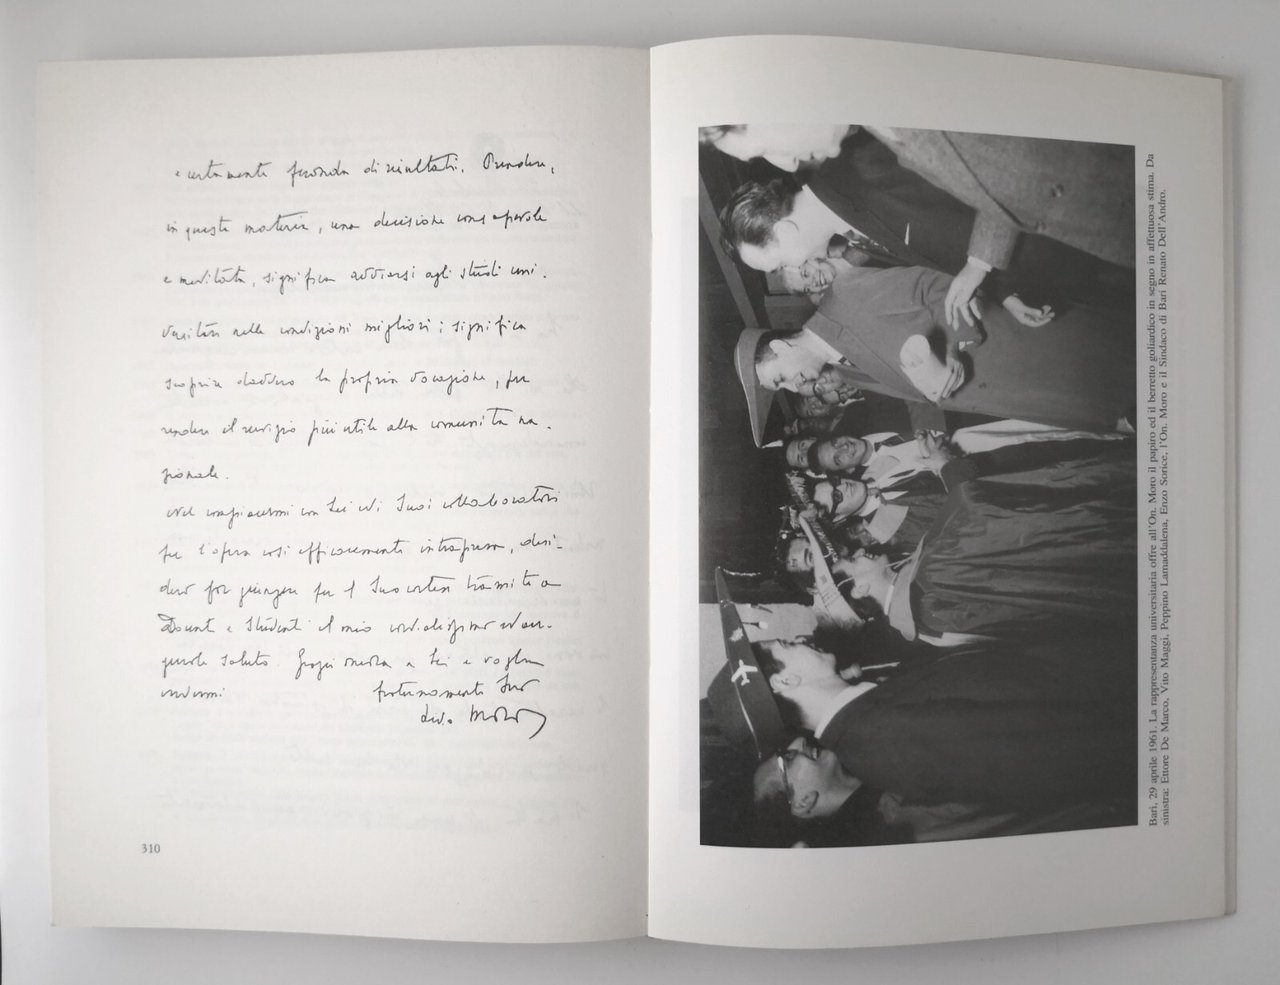 e certamente feconda di risultati. Prendere,
in questa materia, una decisione consapevole
e meditata, significa avviarsi agli studi uni-
versitari nelle condizioni migliori; significa
scoprire davvero la propria vocazione, per
rendere il servizio più utile alla comunità na-
zionale.
Nel compiacermi con Lei ed i Suoi collaboratori
per l'opera così efficacemente intrapresa, desi-
dero far giungere per il Suo cortese tramite a
Docenti e Studenti il mio cordialissimo ed au-
gurale saluto. Grazie ancora a Lei e voglia
credermi
Suo
Moro
310
Bari, 29 aprile 1961. La rappresentanza universitaria offre all'On. Moro il papiro ed il berretto goliardico in segno in affettuosa stima. Da
sinistra: Ettore De Marco, Vito Maggi, Peppino Lamaddalena, Enzo Sorice, l'On. Moro e il Sindaco di Bari Renato Dell'Andro.